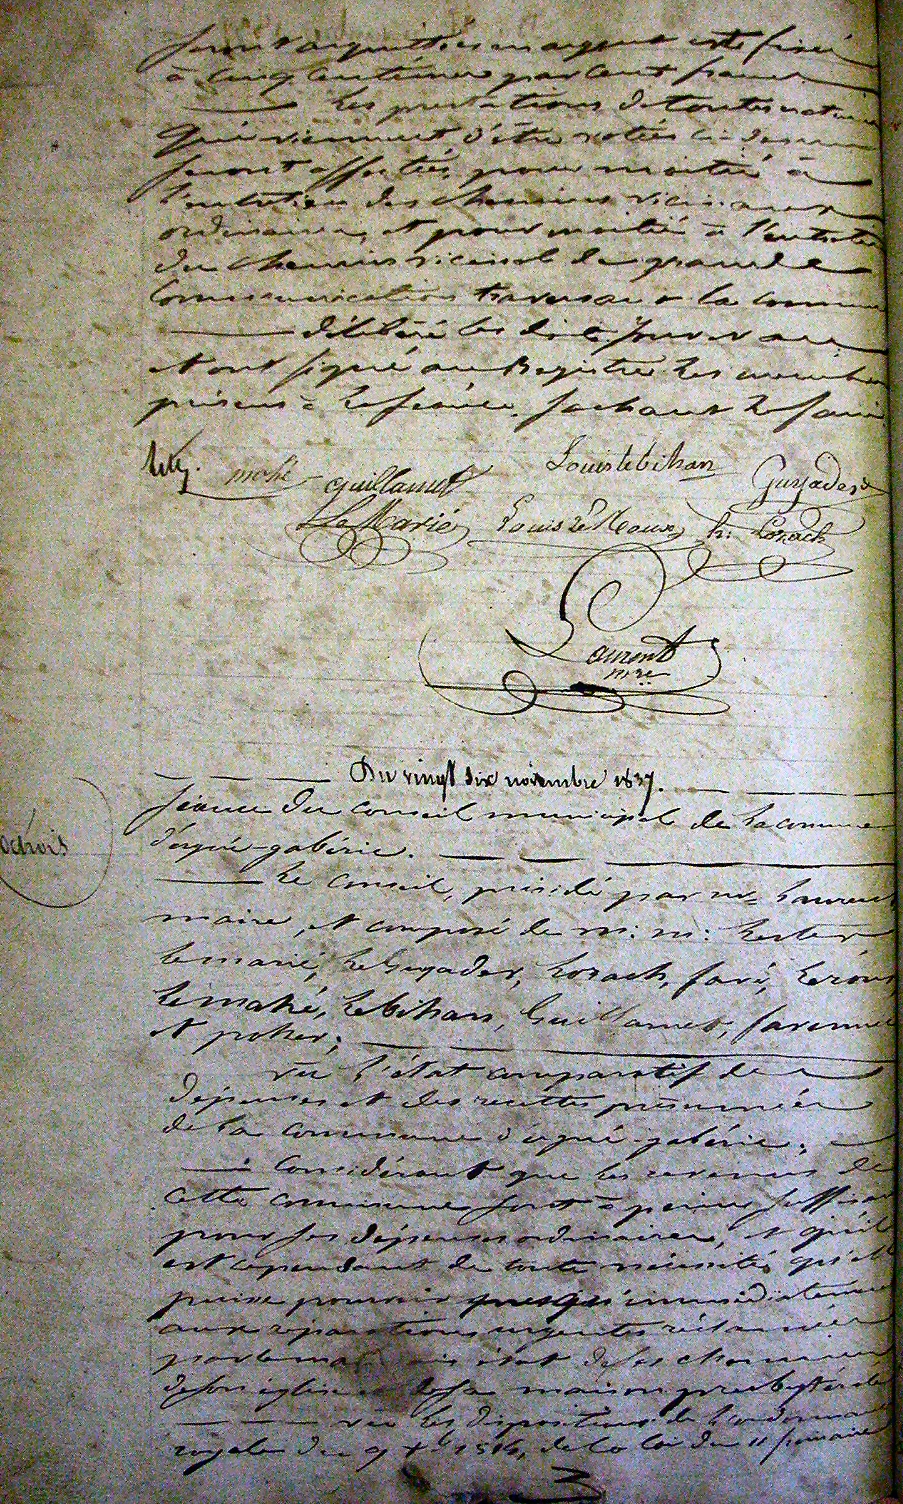 seront acquittées en argent est fixé
à cinq centimes par cent francs
Les prestations de toutes nature
qui viennent d'être votées ci dessus
seront affectées pour moitié à
l'entretien des chemins vicinaux
ordinaires, et pour moitié à l'entretien
du chemin vicinal de grande
communication traversant la commune
délibéré les dits jour et an
et ont signé au Registre les membres
présens à la séance sachant le faire
mahé Guillamet Louis le bihan Guyader
Le Marié Louis Le h: Lozach
Laurent
mre
Du vingt six novembre 1837.
octrois
séance du conseil municipal de la commune
d'ergué-gabéric.
Le conseil, présidé par mr Laurent,
maire, et composé de m. m:
lemarié, le Guyader, Lozach,
le mahé, le bihan, Guillamet,
et poher;
vu l'état comparatif des
dépenses et des recettes présumées
de la commune d'ergué-gabéric;
Considérant que les revenus de
cette commune sont à peine suffisans
pour ses dépenses ordinaires, et qu'il
est cependant de toute nécessité qu'elle
puisse pourvoir presqu'immédiatement
aux réparations urgentes réclamées
par le mauvais état de ses chemins,
de son église et de sa maison presbytérale
vu les dispositions de l'ordonnance
royale du 9 Xbre 1814, de la loi du 11 frimaire